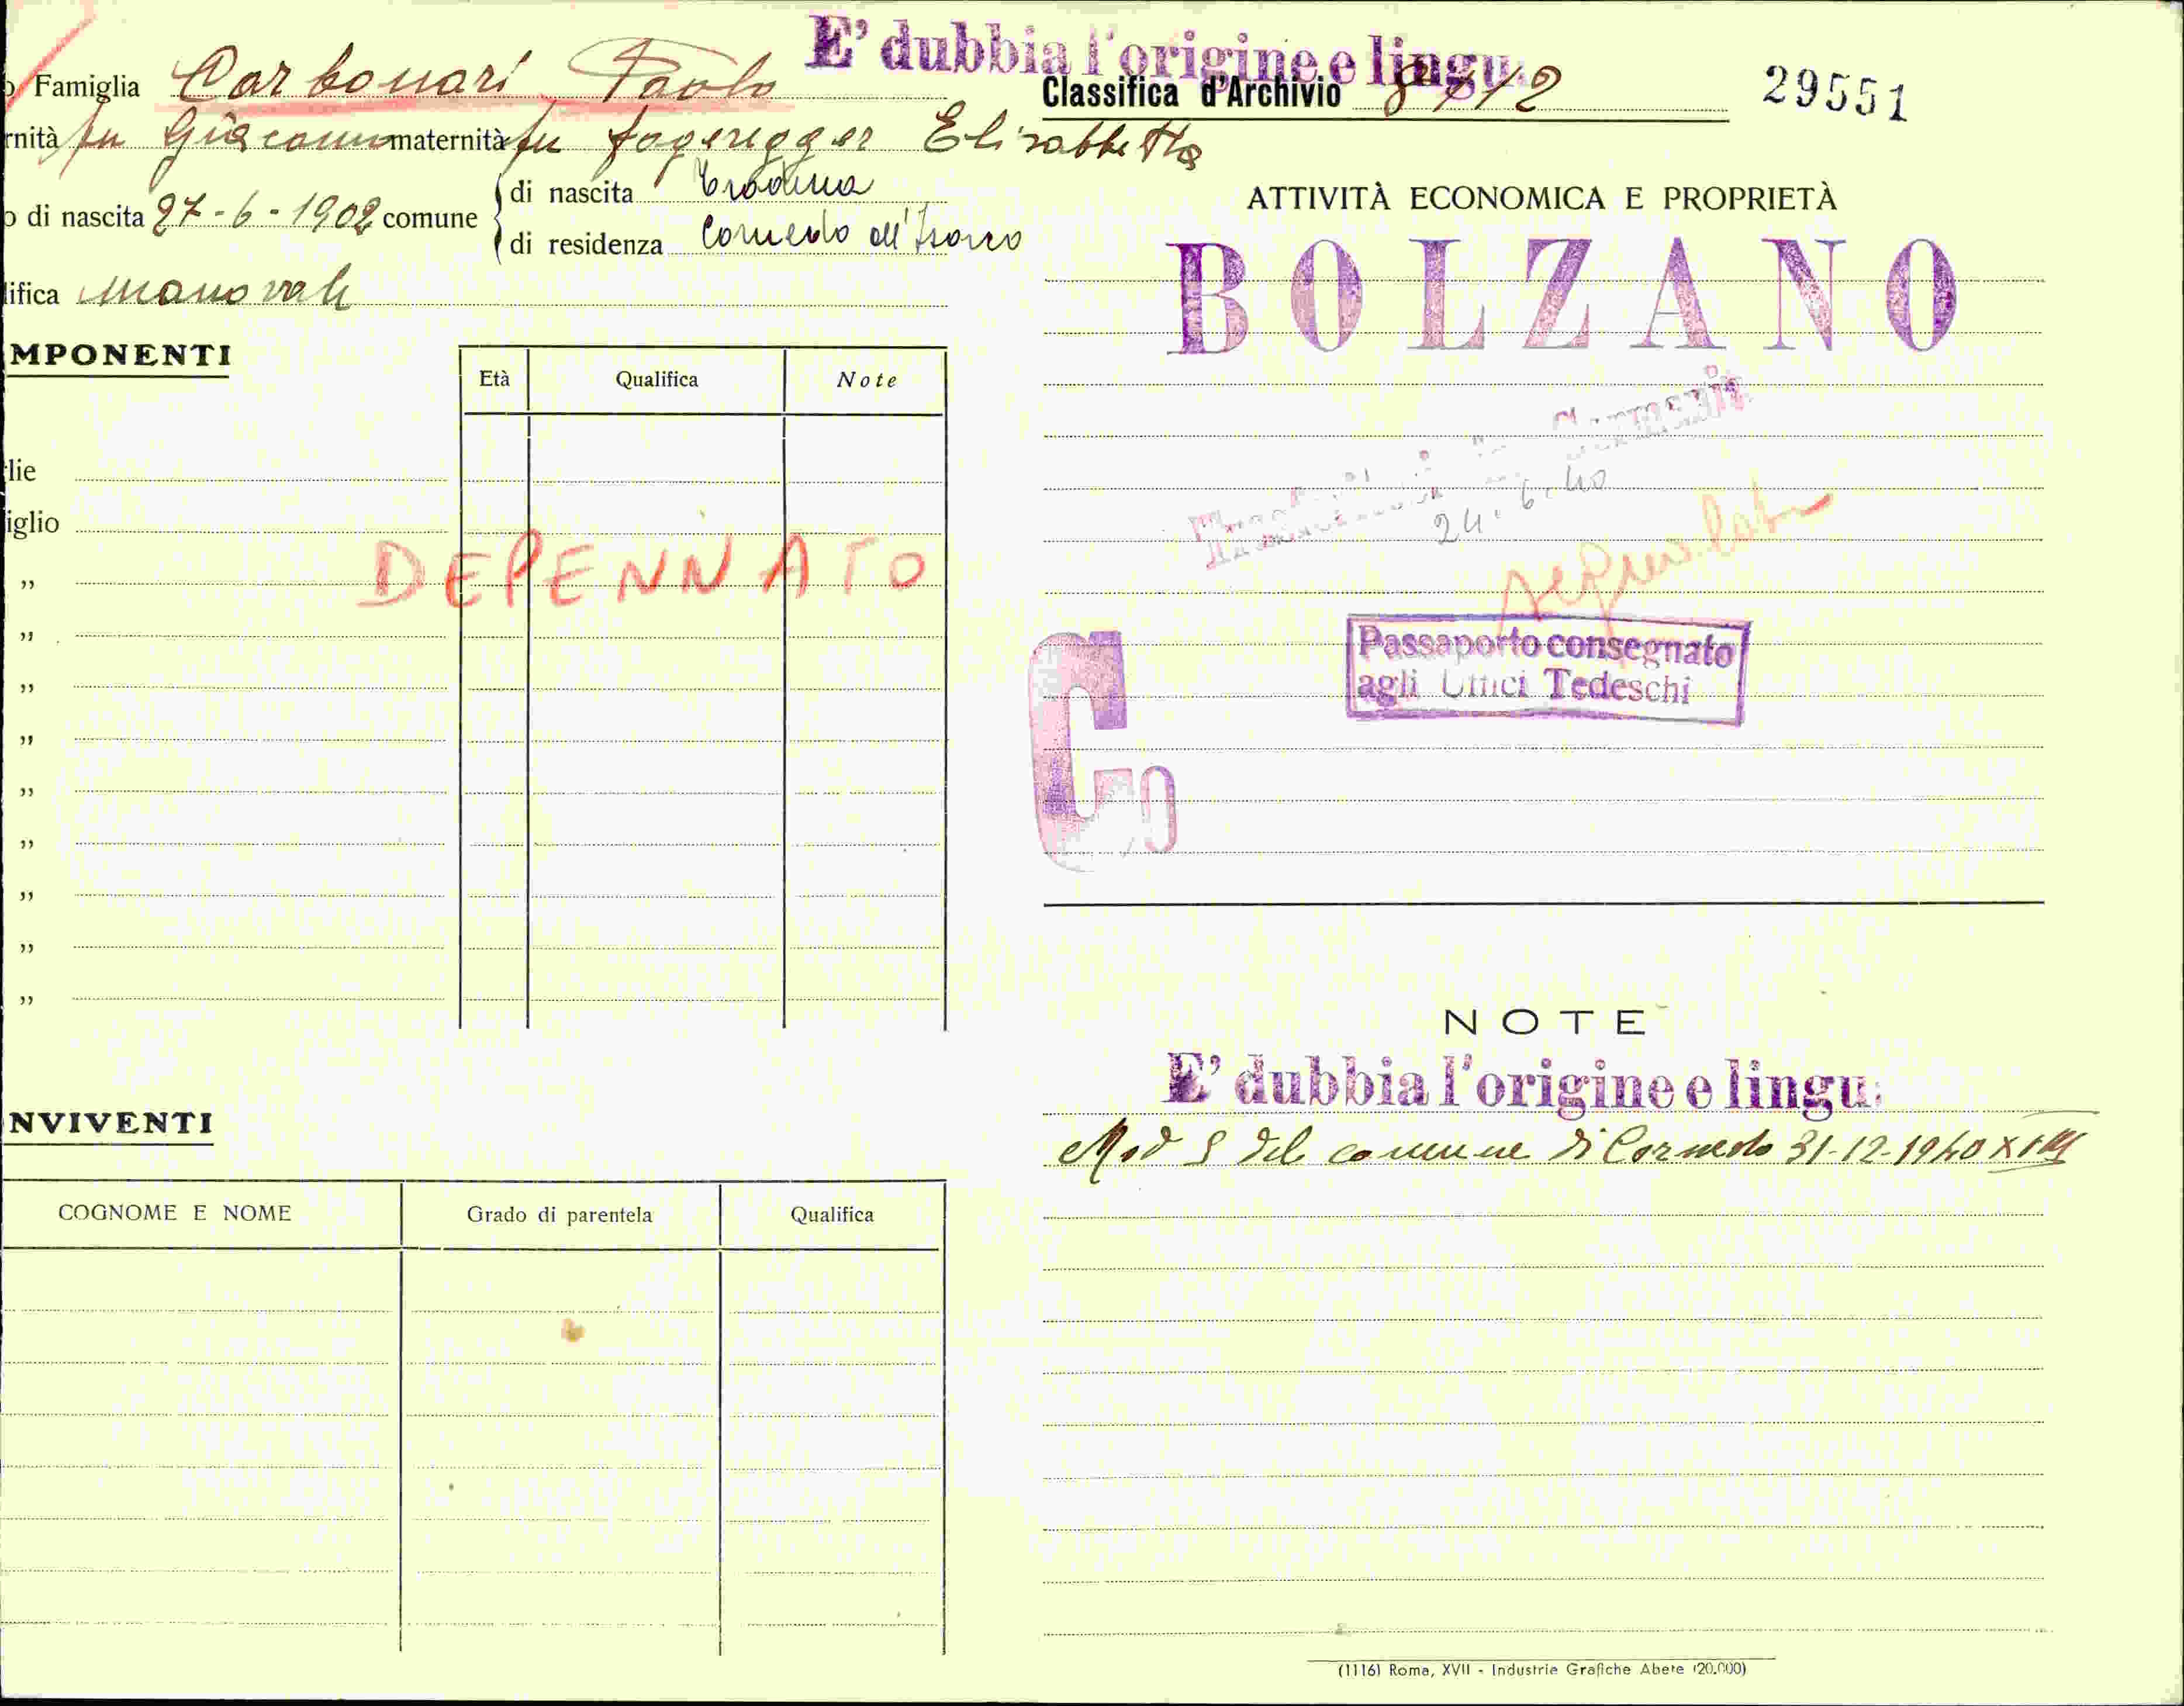 E' dubbia l'origine e lingu.
o Famiglia Carbonari Paolo
Classifica d'Archivio
29551
rnità fu Giacomo maternità fu Elisabbetta
o di nascita 27-6-1902 comune
di nascita Trodena
di residenza Cornedo all'Isarco
lifica manovale
ATTIVITÀ ECONOMICA E PROPRIETÀ
BOLZANO
MPONENTI
Età Qualifica Note
lie
iglio
"
"
"
"
"
"
"
"
"
DEPENNATO
24.6.40
Passaporto consegnato
agli Uffici Tedeschi
C
NOTE
E' dubbia l'origine e lingu.
Mod S del comune di Cornedo 31-12-1940
NVIVENTI
COGNOME E NOME Grado di parentela Qualifica
(1116) Roma, XVII - Industrie Grafiche Abete (20.000)